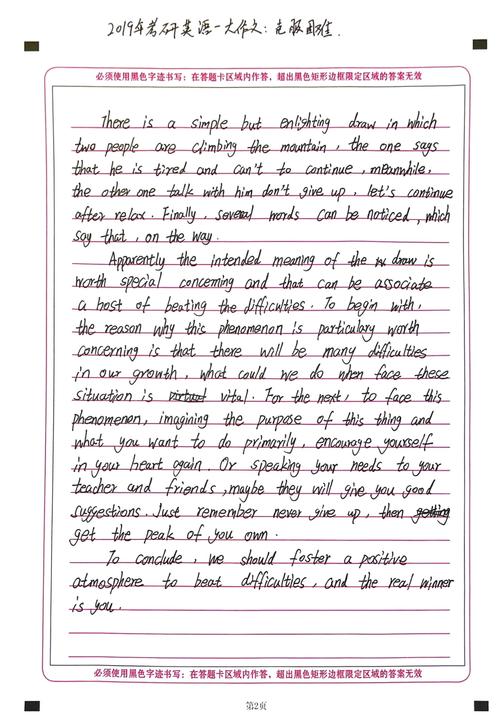 2019年考研英语一大作文：克服困难.
必须使用黑色字迹书写：在答题卡区域内作答，超出黑色矩形边框限定区域的答案无效
There is a simple but enlighting draw in which
two people are climbing the mountain, the one says
that he is tired and can't to continue, meanwhile,
the other one talk with him don't give up, let's continue
after relax. Finally, several words can be noticed, which
say that, on the way.
Apparently the intended meaning of the draw is
worth special concerning and that can be associate
a host of beating the difficulties. To begin with,
the reason why this phenomenon is particulary worth
concerning is that there will be many difficulties
in our growth, what could we do when face these
situation is vital. For the next, to face this
phenomenon, imagining the purpose of this thing and
what you want to do primarily, encourage yourself
in your heart again. Or speaking your needs to your
teacher and friends, maybe they will give you good
suggestions. Just remember never give up, then getting
get the peak of you own.
To conclude, we should foster a positive
atmosphere to beat difficulties, and the real winner
is you.
必须使用黑色字迹书写：在答题卡区域内作答，超出黑色矩形边框限定区域的答案无效
第2页